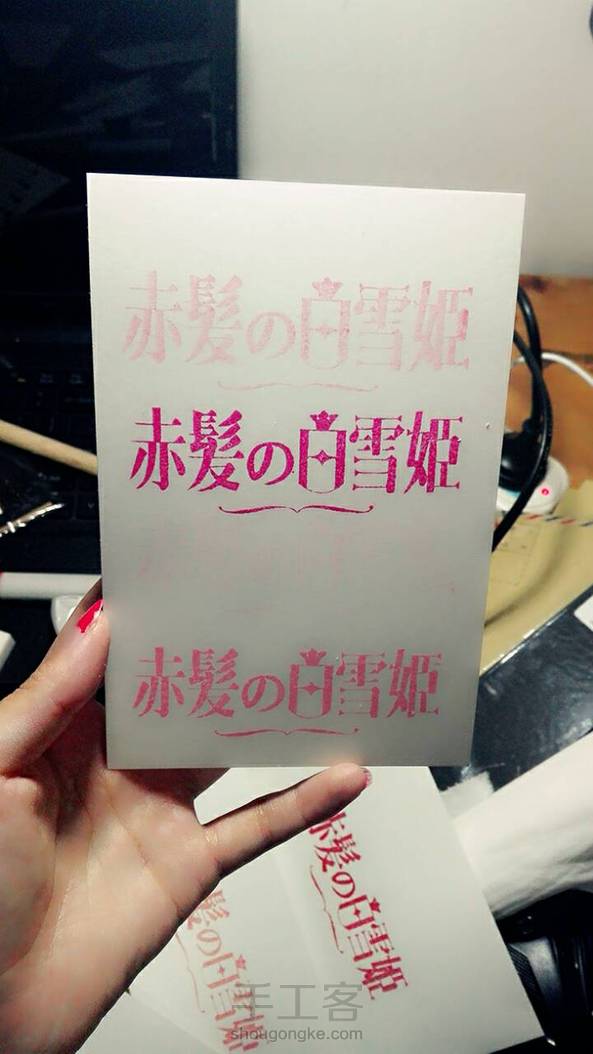 赤髪の白雪姫
赤髪の白雪姫
赤髪の白雪姫
赤髪の白雪姫
髪の白雪
手工客
shougongke.com